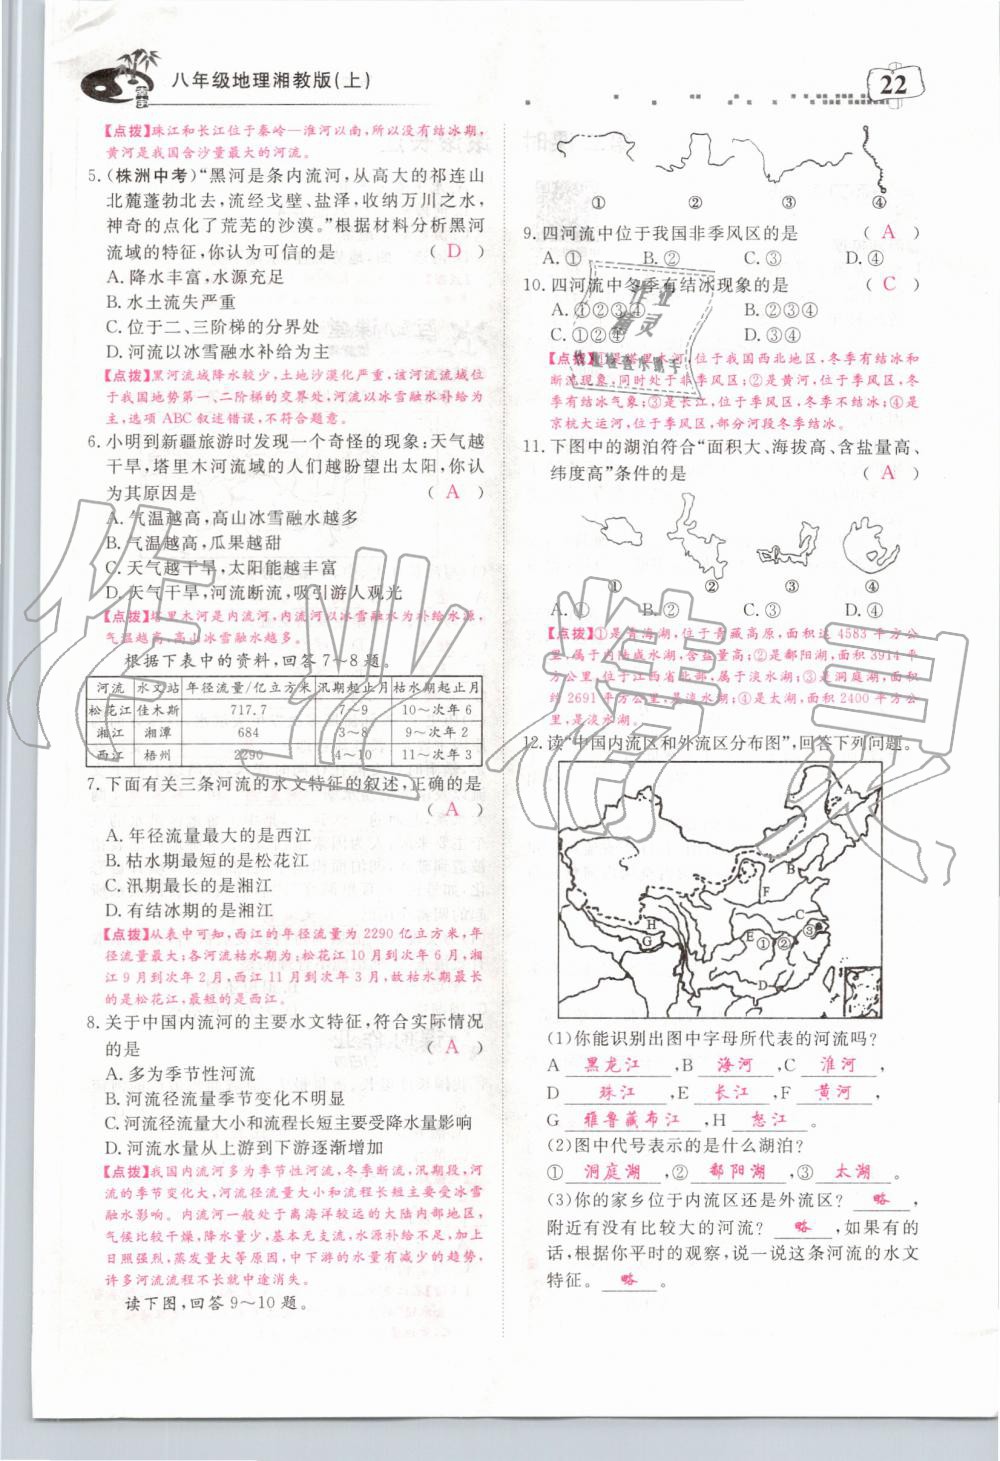 八年级地理湘教版(上)
22
【点拨】珠江和长江位于秦岭—淮河以南,所以没有结冰期,
黄河是我国含沙量最大的河流。
5.(株洲中考)“黑河是条内流河,从高大的祁连山
北麓蓬勃北去,流经戈壁、盐泽,收纳万川之水,
神奇的点化了荒芜的沙漠。”根据材料分析黑河
流域的特征,你认为可信的是 ( D )
A.降水丰富,水源充足
B.水土流失严重
C.位于二、三阶梯的分界处
D.河流以冰雪融水补给为主
【点拨】黑河流域降水较少,土地沙漠化严重,该河流流域位
于我国地势第一、二阶梯的分界处,河流以冰雪融水补给为
主,选项 ABC 叙述错误,不符合题意。
6.小明到新疆旅游时发现一个奇怪的现象:天气越
干旱,塔里木河流域的人们越盼望出太阳,你认
为其原因是 ( A )
A.气温越高,高山冰雪融水越多
B.气温越高,瓜果越甜
C.天气越干旱,太阳能越丰富
D.天气干旱,河流断流,吸引游人观光
【点拨】塔里木河是内流河,内流河以冰雪融水为补给水源,
气温越高,高山冰雪融水越多。
根据下表中的资料,回答7~8题。
河流 水文站 年径流量/亿立方米 汛期起止月 枯水期起止月
松花江 佳木斯 717.7 7~9 10~次年6
湘江 湘潭 684 3~8 9~次年2
西江 梧州 2290 4~10 11~次年3
7.下面有关三条河流的水文特征的叙述,正确的是
( A )
A.年径流量最大的是西江
B.枯水期最短的是松花江
C.汛期最长的是湘江
D.有结冰期的是湘江
【点拨】从表中可知,西江的年径流量为 2290 亿立方米,年径
流量最大;各河流枯水期为:松花江10月到次年6月,湘
江9月到次年2月,西江11月到次年3月,故枯水期最长
的是松花江,最短的是西江。
8.关于中国内流河的主要水文特征,符合实际情况
的是 ( A )
A.多为季节性河流
B.河流径流量季节变化不明显
C.河流径流量大小和流程长短主要受降水量影响
D.河流水量从上游到下游逐渐增加
【点拨】我国内流河多为季节性河流,冬季断流,汛期段,河
流的季节变化大,河流径流量大小和流程长短主要受冰雪
融水影响。内流河一般处于离海洋较远的大陆内部地区,
气候比较干燥,降水量少,基本无支流,水源补给不足,加上
日照强烈,蒸发量大等原因,中下游的水量有减少的趋势,
许多河流流程不长就中途消失。
读下图,回答9~10题。
① ② ③ ④
9.四河流中位于我国非季风区的是 ( A )
A.① B.② C.③ D.④
10.四河流中冬季有结冰现象的是 ( C )
A.①②③④ B.②③④
C.①②④ D.①②③
【点拨】①是塔里木河,位于我国西北地区,冬季有结冰和
断流现象;同时处于非季风区;②是黄河,位于季风区,冬季
有结冰气象;③是长江,位于季风区,冬季不结冰;④是
京杭大运河,位于季风区,部分河段冬季结冰。
11.下图中的湖泊符合“面积大、海拔高、含盐量高、
纬度高”条件的是 ( A )
① ② ③ ④
A.① B.② C.③ D.④
【点拨】①是青海湖,位于青藏高原,面积达 4583 平方公
里,属于内陆咸水湖,含盐量高;②是鄱阳湖,面积 3914 平
方公里,位于江西省北部,属于淡水湖;③是洞庭湖,面积
约 2691 平方公里,是淡水湖;④是太湖,面积 2400 平方公
里,是淡水湖。
12.读“中国内流区和外流区分布图”,回答下列问题。
A
B
F
C
H
G
E
①
②
③
D
(1)你能识别出图中字母所代表的河流吗?
A 黑龙江 ,B 海河 ,C 淮河 ,
D 珠江 ,E 长江 ,F 黄河 ,
G 雅鲁藏布江 ,H 怒江 。
(2)图中代号表示的是什么湖泊?
① 洞庭湖 ,② 鄱阳湖 ,③ 太湖 。
(3)你的家乡位于内流区还是外流区? 略 ,
附近有没有比较大的河流? 略 ,如果有的
话,根据你平时的观察,说一说这条河流的水文
特征。 略 。
作业精灵